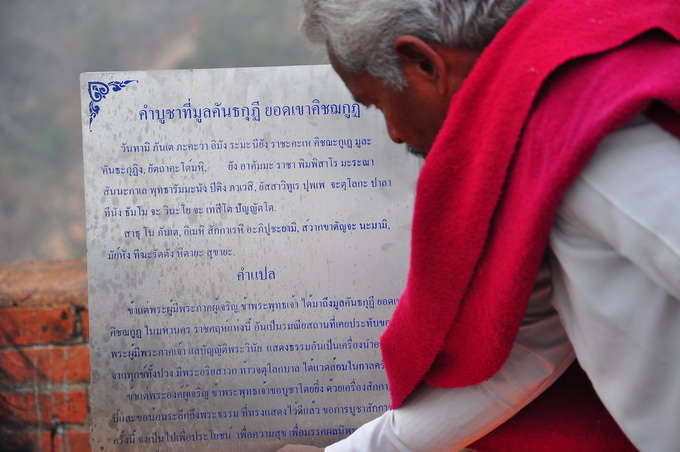 คำบูชาที่มูลคันธกุฏี ยอดเขาคิชฌกูฏ
วันทามิ ภันเต ภะคะวา อิมัง ระมะนียัง ราชะคะเห คิชฌะกูเฏ มูละ
คันธะกุฏิง, ยัตถาคะโตมหิ, ยัง อาคัมมะ ราชา พิมพิสาโร มะระณา
สันนะกาเล พุทธารัมมะนัง ปีติง ภาเวสิ, ยัสสาวิทูเร ปุพเพ จะตุโลกะ ปาลา
ทีนัง ธัมโม จะ วินะโย จะ เทสิโต ปัญญัตโต.
สาธุ โน ภันเต, อิเมหิ สักกาเรหิ อะภิปูชะยามิ, สวากขาตัญจะ นะมามิ,
มัยหัง ทีฆะรัตตัง หิตายะ สุขายะ.
คำแปล
ข้าแต่พระผู้มีพระภาคผู้เจริญ ข้าพระพุทธเจ้า ได้มาถึงมูลคันธกุฏี ยอดเขา
คิชฌกูฏ ในมหานคร ราชคฤหแห่งนี้ อันเป็นรมณียสถานที่เคยประทับของ
พระผู้มีพระภาคเจ้า แลบัญญัติพระวินัย แสดงธรรมอันเป็นเครื่องนำออก
จากทุกข์ทั้งปวง มีพระอริยสาวก ท้าวจตุโลกบาล ได้แวดล้อมในกาลครั้ง
ข้าแต่พระองค์ผู้เจริญ ข้าพระพุทธเจ้าขอบูชาโดยยิ่ง ด้วยเครื่องสักการะ
นี้และขอน้อมระลึกถึงพระธรรม ที่ทรงแสดงไว้ดีแล้ว ขอการบูชาสักการะ
ครั้งนี้ จงเป็นไปเพื่อประโยชน์ เพื่อความสุข เพื่อมรรคผลนิพพาน